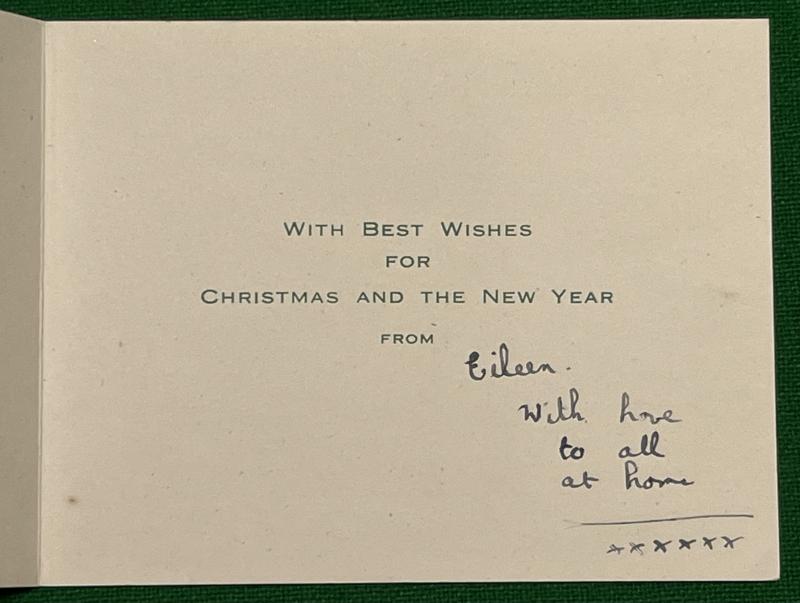 WITH BEST WISHES
FOR
CHRISTMAS AND THE NEW YEAR
FROM
Eileen.
With love
to all
at home
xxxxxx